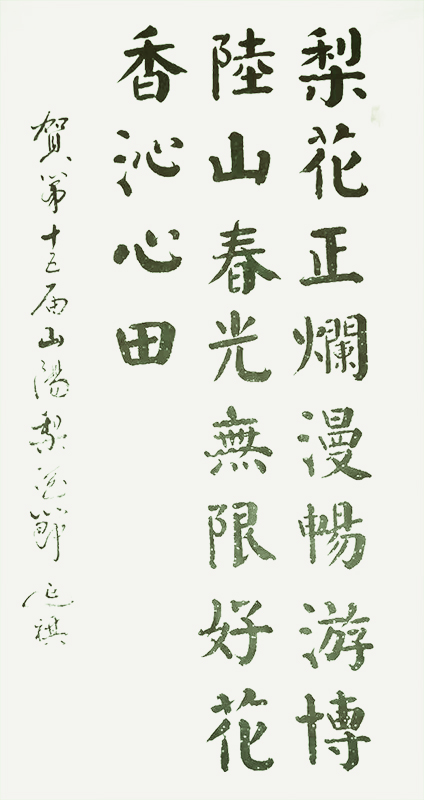 梨花正爛漫暢游博
陸山春光無限好花
香沁心田
賀第十五届山陽梨花節 延祺